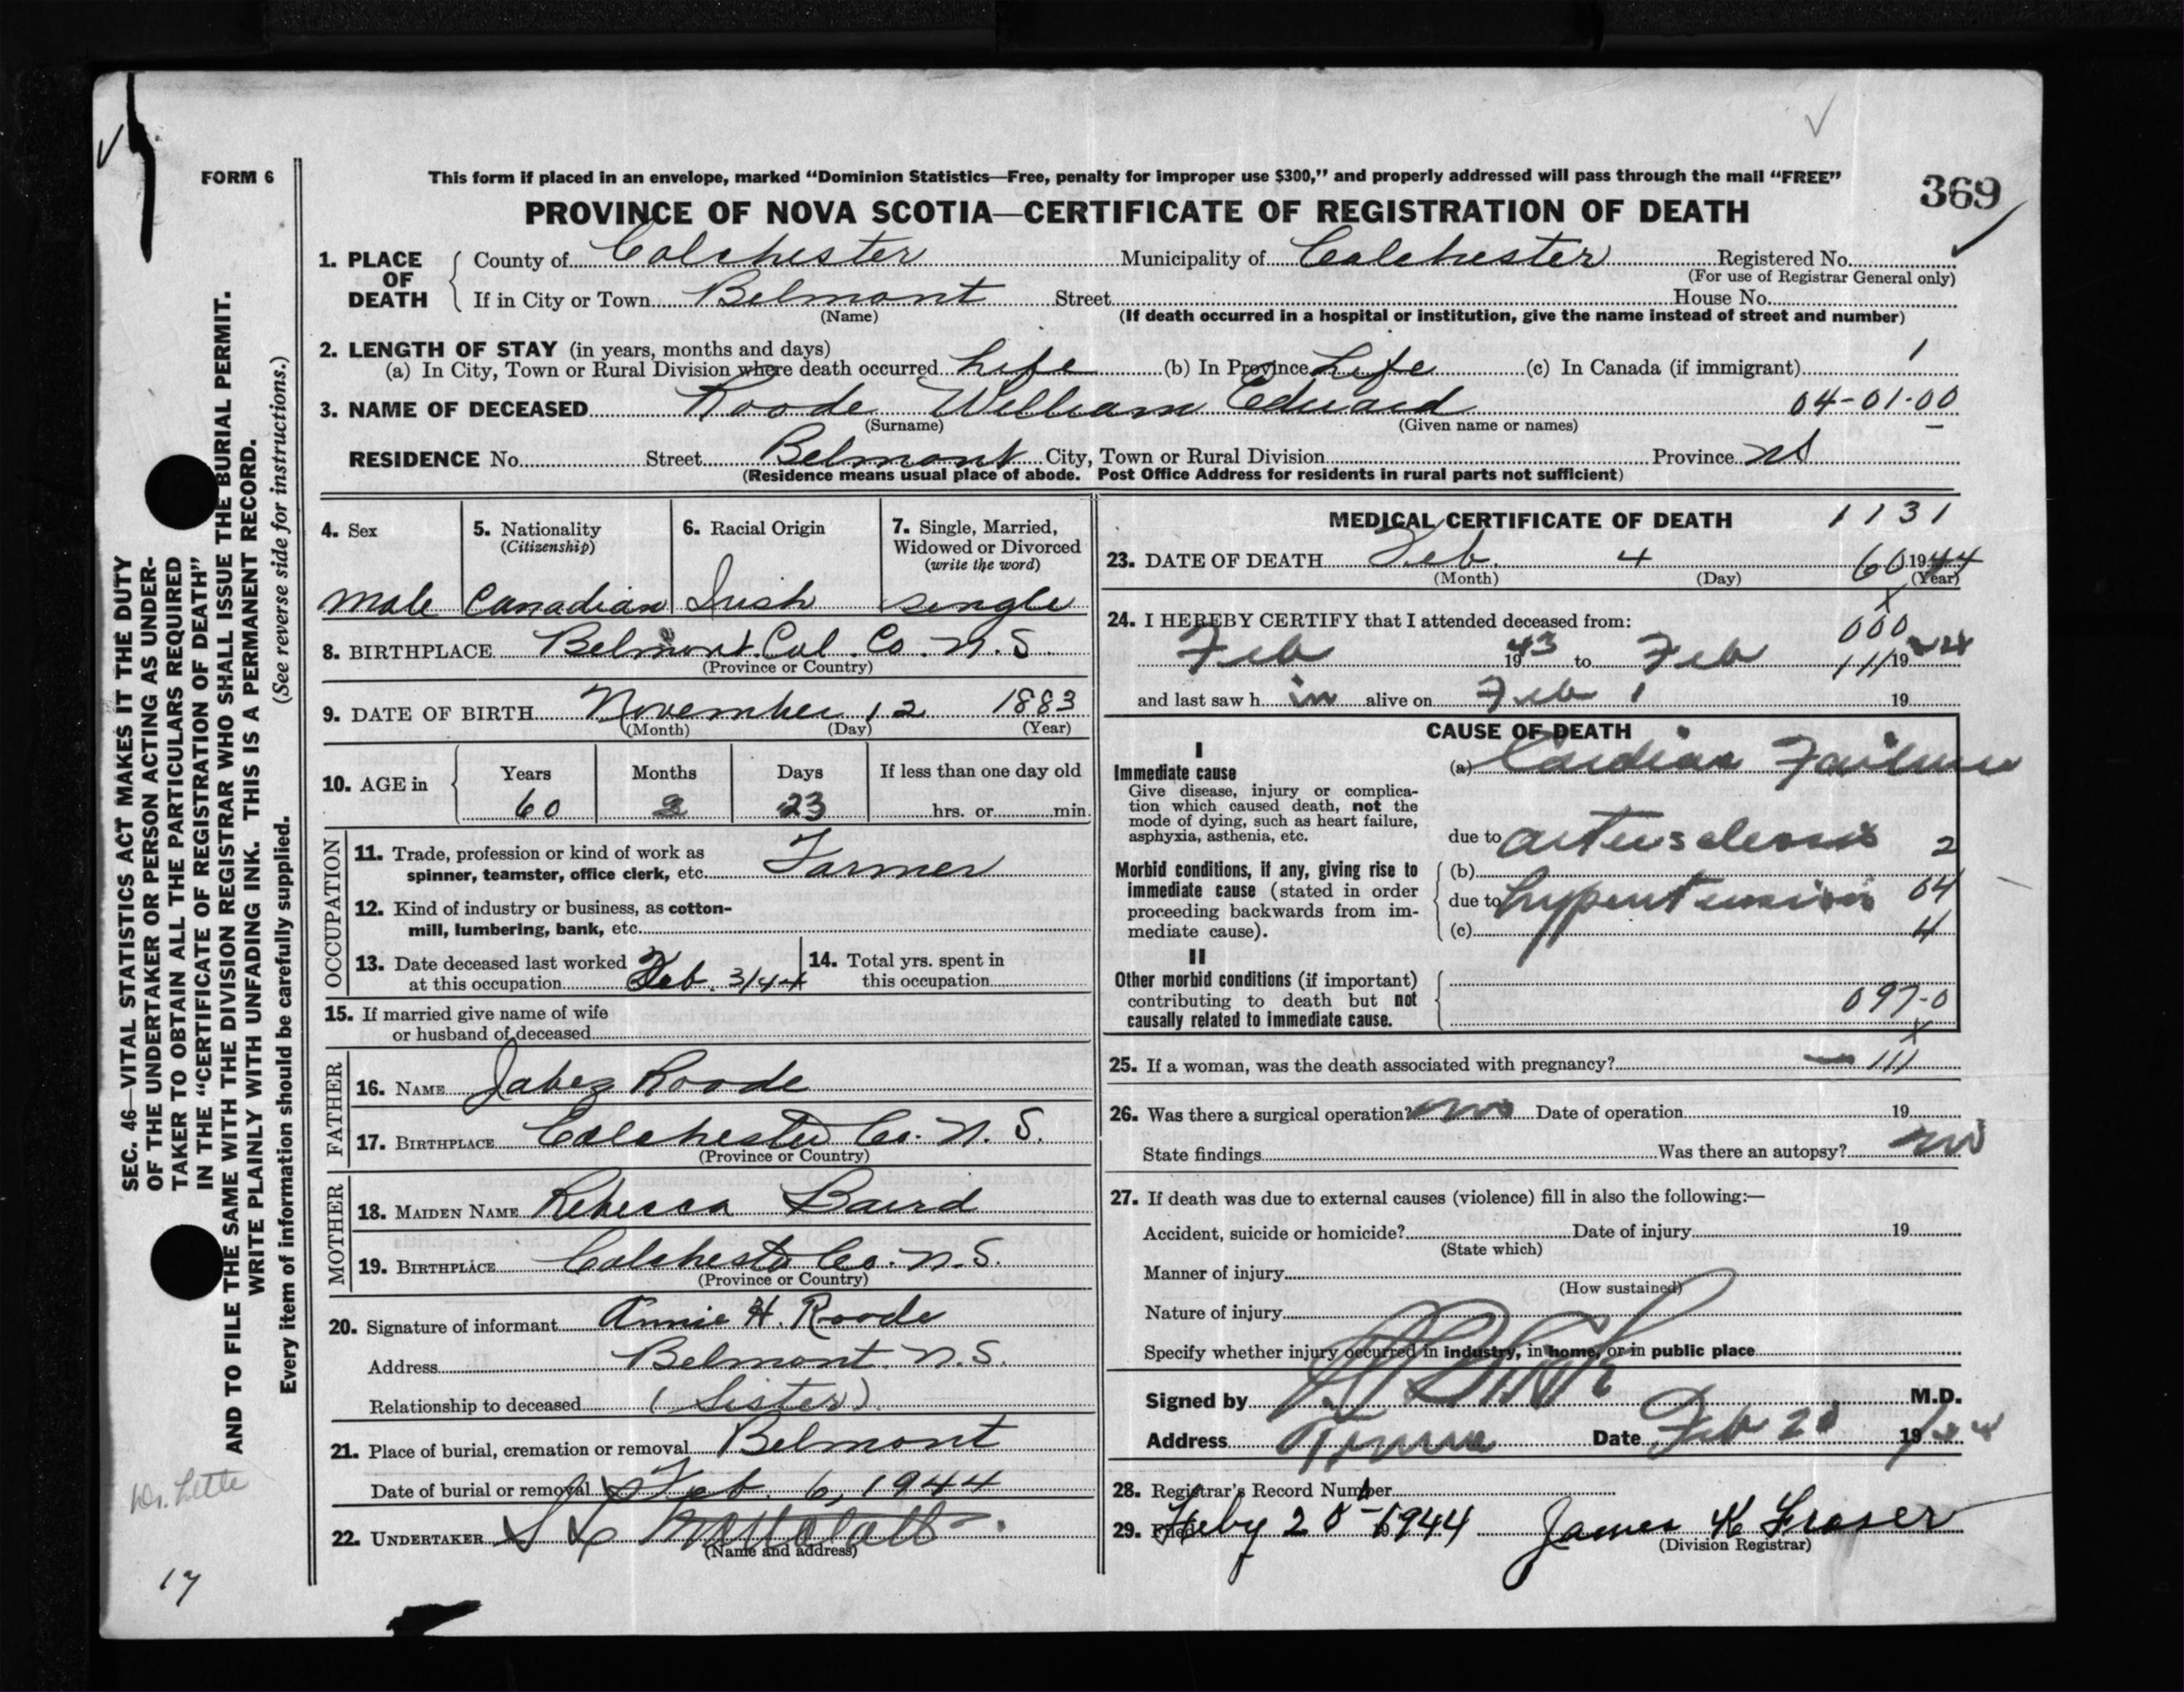 FORM 6
This form if placed in an envelope, marked "Dominion Statistics—Free, penalty for improper use $300," and properly addressed will pass through the mail "FREE"
369
PROVINCE OF NOVA SCOTIA—CERTIFICATE OF REGISTRATION OF DEATH
1. PLACE OF DEATH County of Colchester Municipality of Colchester Registered No.
(For use of Registrar General only)
If in City or Town Belmont Street House No.
(Name) (If death occurred in a hospital or institution, give the name instead of street and number)
2. LENGTH OF STAY (in years, months and days) 1
(a) In City, Town or Rural Division where death occurred Life (b) In Province Life (c) In Canada (if immigrant)
3. NAME OF DECEASED Roode William Edward 04-01-00
(Surname) (Given name or names)
RESIDENCE No. Street Belmont City, Town or Rural Division Province NS
(Residence means usual place of abode. Post Office Address for residents in rural parts not sufficient)
4. Sex
Male
5. Nationality
(Citizenship)
Canadian
6. Racial Origin
Irish
7. Single, Married,
Widowed or Divorced
(write the word)
Single
8. BIRTHPLACE Belmont Col. Co. N.S.
(Province or Country)
9. DATE OF BIRTH November 12 1883
(Month) (Day) (Year)
10. AGE in Years Months Days If less than one day old
60 2 23 hrs. or min.
OCCUPATION
11. Trade, profession or kind of work as
spinner, teamster, office clerk, etc. Farmer
12. Kind of industry or business, as cotton-
mill, lumbering, bank, etc.
13. Date deceased last worked
at this occupation Feb. 3/44
14. Total yrs. spent in
this occupation
15. If married give name of wife
or husband of deceased
FATHER
16. NAME Jabez Roode
17. BIRTHPLACE Colchester Co. N.S.
(Province or Country)
MOTHER
18. MAIDEN NAME Rebecca Baird
19. BIRTHPLACE Colchester Co. N.S.
(Province or Country)
20. Signature of informant Annie H. Roode
Address Belmont. N.S.
Relationship to deceased (Sister)
21. Place of burial, cremation or removal Belmont
Date of burial or removal Feb. 6, 1944
22. UNDERTAKER
(Name and address)
MEDICAL CERTIFICATE OF DEATH 1131
23. DATE OF DEATH Feb. 4 60 1944
(Month) (Day) (Year)
24. I HEREBY CERTIFY that I attended deceased from: 000
Feb 1943 to Feb 111 19
and last saw h im alive on Feb 1 19
CAUSE OF DEATH
I
Immediate cause
Give disease, injury or complica-
tion which caused death, not the
mode of dying, such as heart failure,
asphyxia, asthenia, etc.
(a) Cardiac Failure
due to arteriosclerosis 2
Morbid conditions, if any, giving rise to
immediate cause (stated in order
proceeding backwards from im-
mediate cause).
(b)
due to hypertension 04
(c) 4
II
Other morbid conditions (if important)
contributing to death but not
causally related to immediate cause.
097-0
x
25. If a woman, was the death associated with pregnancy? — 111
26. Was there a surgical operation? no Date of operation 19
State findings Was there an autopsy? no
27. If death was due to external causes (violence) fill in also the following:—
Accident, suicide or homicide? Date of injury 19
(State which)
Manner of injury
(How sustained)
Nature of injury
Specify whether injury occurred in industry, in home, or in public place
Signed by M.D.
Address Truro Date Feb 19
28. Registrar's Record Number
29. Filed Feby 1944 James K Fraser
(Division Registrar)
SEC. 46—VITAL STATISTICS ACT MAKES IT THE DUTY
OF THE UNDERTAKER OR PERSON ACTING AS UNDER-
TAKER TO OBTAIN ALL THE PARTICULARS REQUIRED
IN THE "CERTIFICATE OF REGISTRATION OF DEATH"
AND TO FILE THE SAME WITH THE DIVISION REGISTRAR WHO SHALL ISSUE THE BURIAL PERMIT.
WRITE PLAINLY WITH UNFADING INK. THIS IS A PERMANENT RECORD.
(See reverse side for instructions.)
Every item of information should be carefully supplied.
17